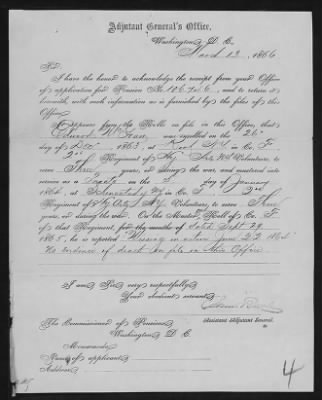 Adjutant General's Office,
Washington, D. C.,
March 12, 1866
Sir:
I have the honor to acknowledge the receipt from your Office
of application for Pension No. and to return it
herewith, with such information as is furnished by the files of this
Office.
It appears from the Rolls on file in this Office, that
was enrolled on the 26"
day of Dec 1863, at in Co. F
2nd Regiment of Volunteers, to
serve Three years, or during the war, and mustered into
service as a on the day of January
1864, at in Co. 2nd
Regiment of Volunteers, to serve
years, or during the war. On the Muster Roll of Co. F
of that Regiment, for the months of dated Sept 29
1865, he is reported "Missing in action June 22
No evidence of death on file in this Office
I am, Sir, very respectfully,
Your obedient servant,
Assistant Adjutant General.
The Commissioner of Pensions,
Washington, D. C.
Memoranda:
Name of applicant,
Address,
4